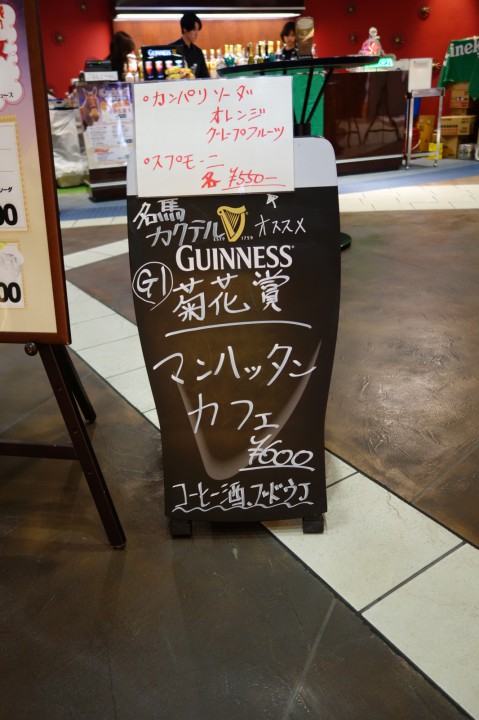 ・カンパリソーダ
オレンジ
グレープフルーツ
・スプモーニ
各 ¥550-
名馬
カクテル
オススメ
GUINNESS
G1
菊花賞
マンハッタン
カフェ
¥600
コーヒー酒、